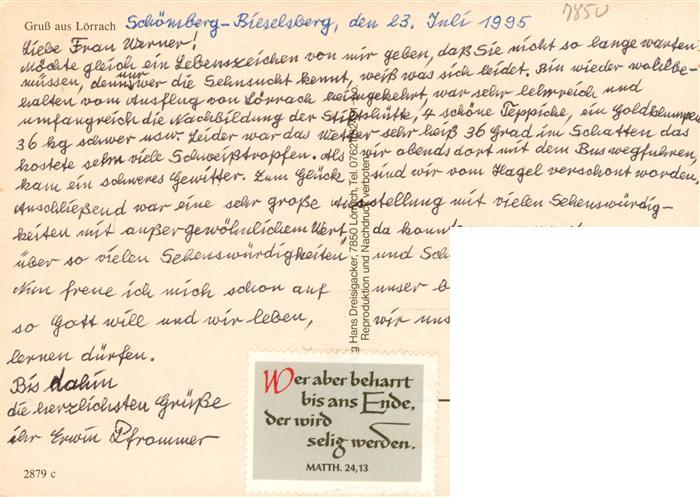 Gruß aus Lörrach
Schömberg-Bieselsberg, den 23. Juli 1995
7850
Liebe Frau Werner!
Möchte gleich ein Lebenszeichen von mir geben, daß Sie nicht so lange warten
müssen, denn nur wer die Sehnsucht kennt, weiß was sich leidet. Bin wieder wohlbe-
halten vom Ausflug von Lörrach heimgekehrt, war sehr lehrreich und
umfangreich die Nachbildung der Stiftshütte, 4 schöne Teppiche, ein Goldklumpen
36 kg schwer usw. Leider war das Wetter sehr heiß 36 Grad im Schatten das
kostete sehr viele Schweißtropfen. Als wir abends dort mit dem Bus wegfuhren,
kam ein schweres Gewitter. Zum Glück sind wir vom Hagel verschont worden,
Anschließend war eine sehr große Ausstellung mit vielen Sehenswürdig-
keiten mit außergewöhnlichem Wert, da
über so vielen Sehenswürdigkeiten, und
Nun freue ich mich schon auf unser
so Gott will und wir leben, wir
lernen dürfen.
Bis dahin
die herzlichsten Grüße
ihr Erwin Pfrommer
2879 c
Hans Dreisigacker, 7850 Lörrach, Tel. 0762
Reproduktion und Nachdruck verboten
Wer aber beharrt
bis ans Ende,
der wird
selig werden.
MATTH. 24,13